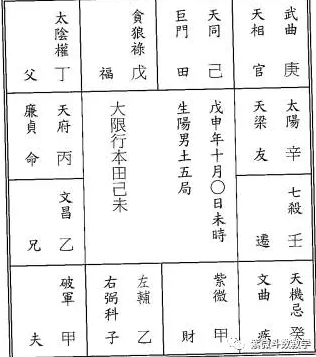 太陰權
丁
父
貪狼祿
戊
福
天同
巨門
己
田
武曲
天相
庚
官
天府
廉貞
丙
命
大限行本田己未
戊申年十月〇日未時
生陽男土五局
太陽
天梁
辛
友
文昌
乙
兄
七殺
壬
遷
破軍
甲
夫
左輔
右弼科
乙
子
紫微
甲
財
天機忌
文曲
癸
疾
紫微斗数教学